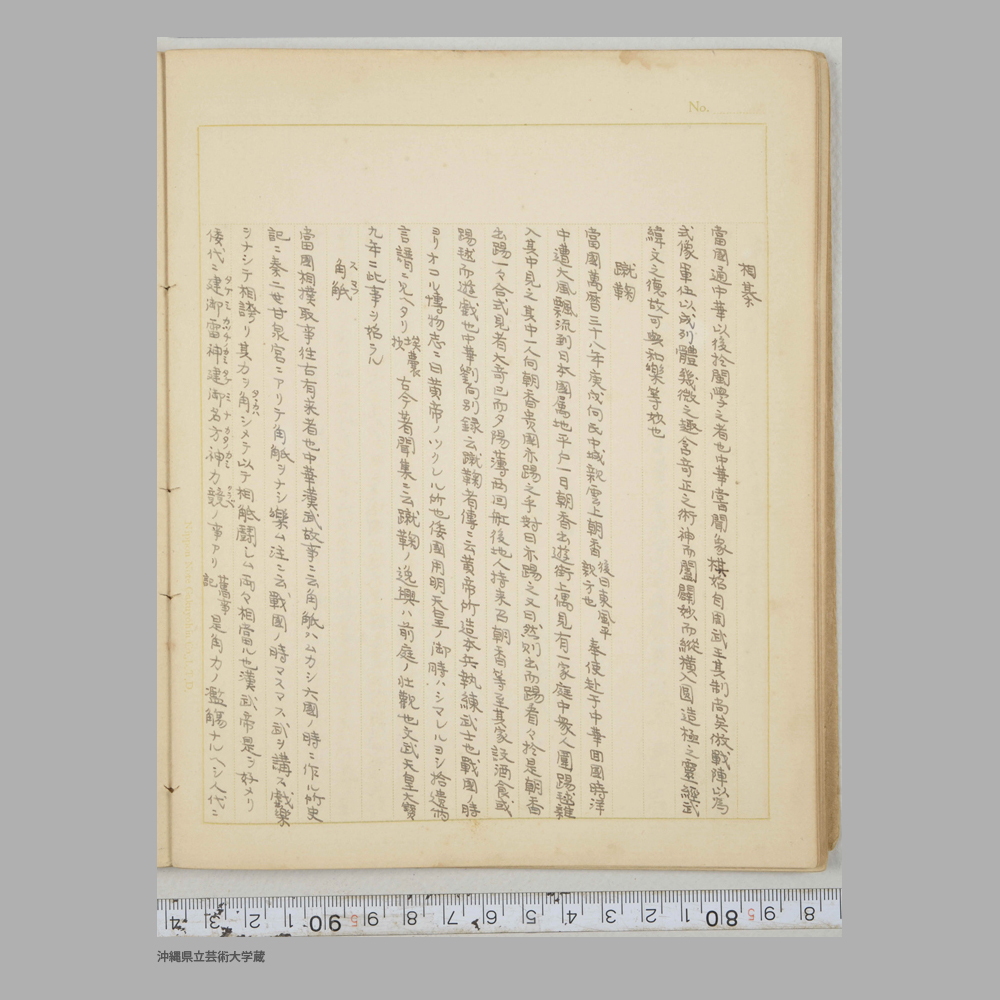 No.
相棊
當國通中華以後於閩學之者也中華嘗聞象棋始自周武王其制尚矣倣戰陣以為
式像軍伍以成列體幾微之趣含奇正之術神而闔闢妙而縱横入圓造極之靈經武
緯文之德故可與和樂等故也
蹴鞠
當國萬曆三十八年庚戌向氏中城親雲上朝香後日東風平親方也奉使赴于中華回國時洋
中遭大風飄流到日本國屬地平戶一日朝香出遊街上偶見有一家庭中衆人圍踢毬雜
入其中見之其中一人向朝香貴國亦踢之乎對曰亦踢之又曰然則出而踢看々於是朝香
出踢一々合式見者大奇已而夕陽薄西回舡後地人持来召朝香等至其家設酒食或
踢毬而遊戲也中華劉向別錄云蹴鞠者傳云黄帝所造本兵執練武士也戰國ノ時
ヨリオコル博物志ニ曰黄帝ノツクレル所也倭國用明天皇ノ御時ハシマレルヨシ拾遺納
言譜ニ見ヘタリ埃嚢抄古今著聞集ニ云蹴鞠ノ逸興ハ前庭ノ壮觀也文武天皇大寳
九年ニ此事ヲ始ラル
角觝
スマヲ
當國相撲取事往古有来者也中華漢武故事ニ云角觝ハムカシ六國ノ時ニ作ル所史
記ニ秦二世甘泉宮ニアリテ角觝ヲナシ樂ム注ニ云戰國ノ時マスマス武ヲ講ス戲樂
ヲナシテ相誇リ其力ヲ角シメテ以テ相觝鬪シム両々相當ル也漢武帝是ヲ好メリ
倭代ニ建御雷神建御名方神力競ノ事アリ萬事記是角力ノ濫觴ナルヘシ人代ニ
4 3 2 1 90 9 8 7 6 5 4 3 2 1 80 9 8
沖縄県立芸術大学蔵